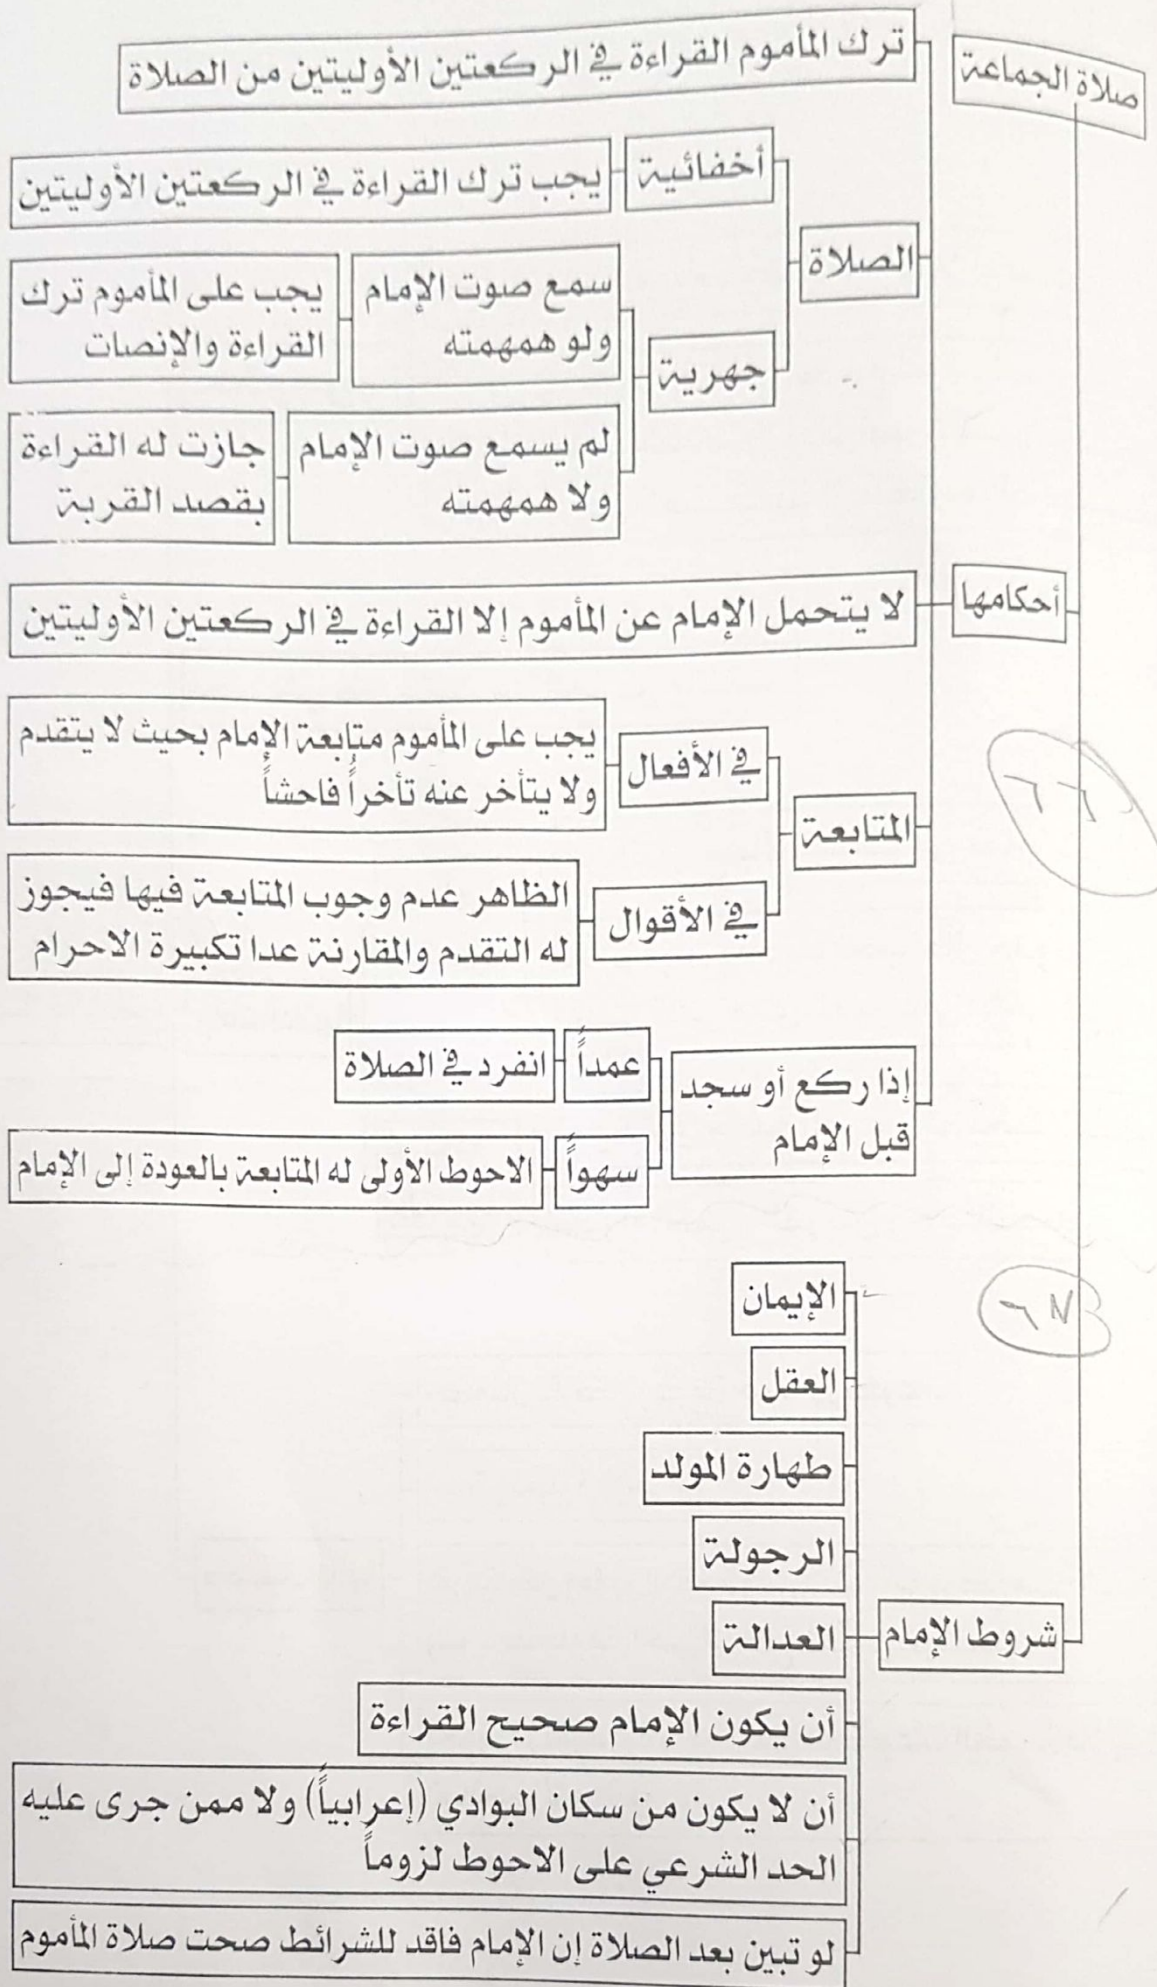 صلاة الجماعة
ترك المأموم القراءة في الركعتين الأوليتين من الصلاة
الصلاة
أخفائية
يجب ترك القراءة في الركعتين الأوليتين
جهرية
سمع صوت الإمام
ولو همهمته
يجب على المأموم ترك
القراءة والإنصات
لم يسمع صوت الإمام
ولا همهمته
جازت له القراءة
بقصد القربة
أحكامها
لا يتحمل الإمام عن المأموم إلا القراءة في الركعتين الأوليتين
المتابعة
في الأفعال
يجب على المأموم متابعة الإمام بحيث لا يتقدم
ولا يتأخر عنه تأخراً فاحشاً
في الأقوال
الظاهر عدم وجوب المتابعة فيها فيجوز
له التقدم والمقارنة عدا تكبيرة الاحرام
إذا ركع أو سجد
قبل الإمام
عمداً
انفرد في الصلاة
سهواً
الاحوط الأولى له المتابعة بالعودة إلى الإمام
شروط الإمام
الإيمان
العقل
طهارة المولد
الرجولة
العدالة
أن يكون الإمام صحيح القراءة
أن لا يكون من سكان البوادي (إعرابياً) ولا ممن جرى عليه
الحد الشرعي على الاحوط لزوماً
لو تبين بعد الصلاة إن الإمام فاقد للشرائط صحت صلاة المأموم